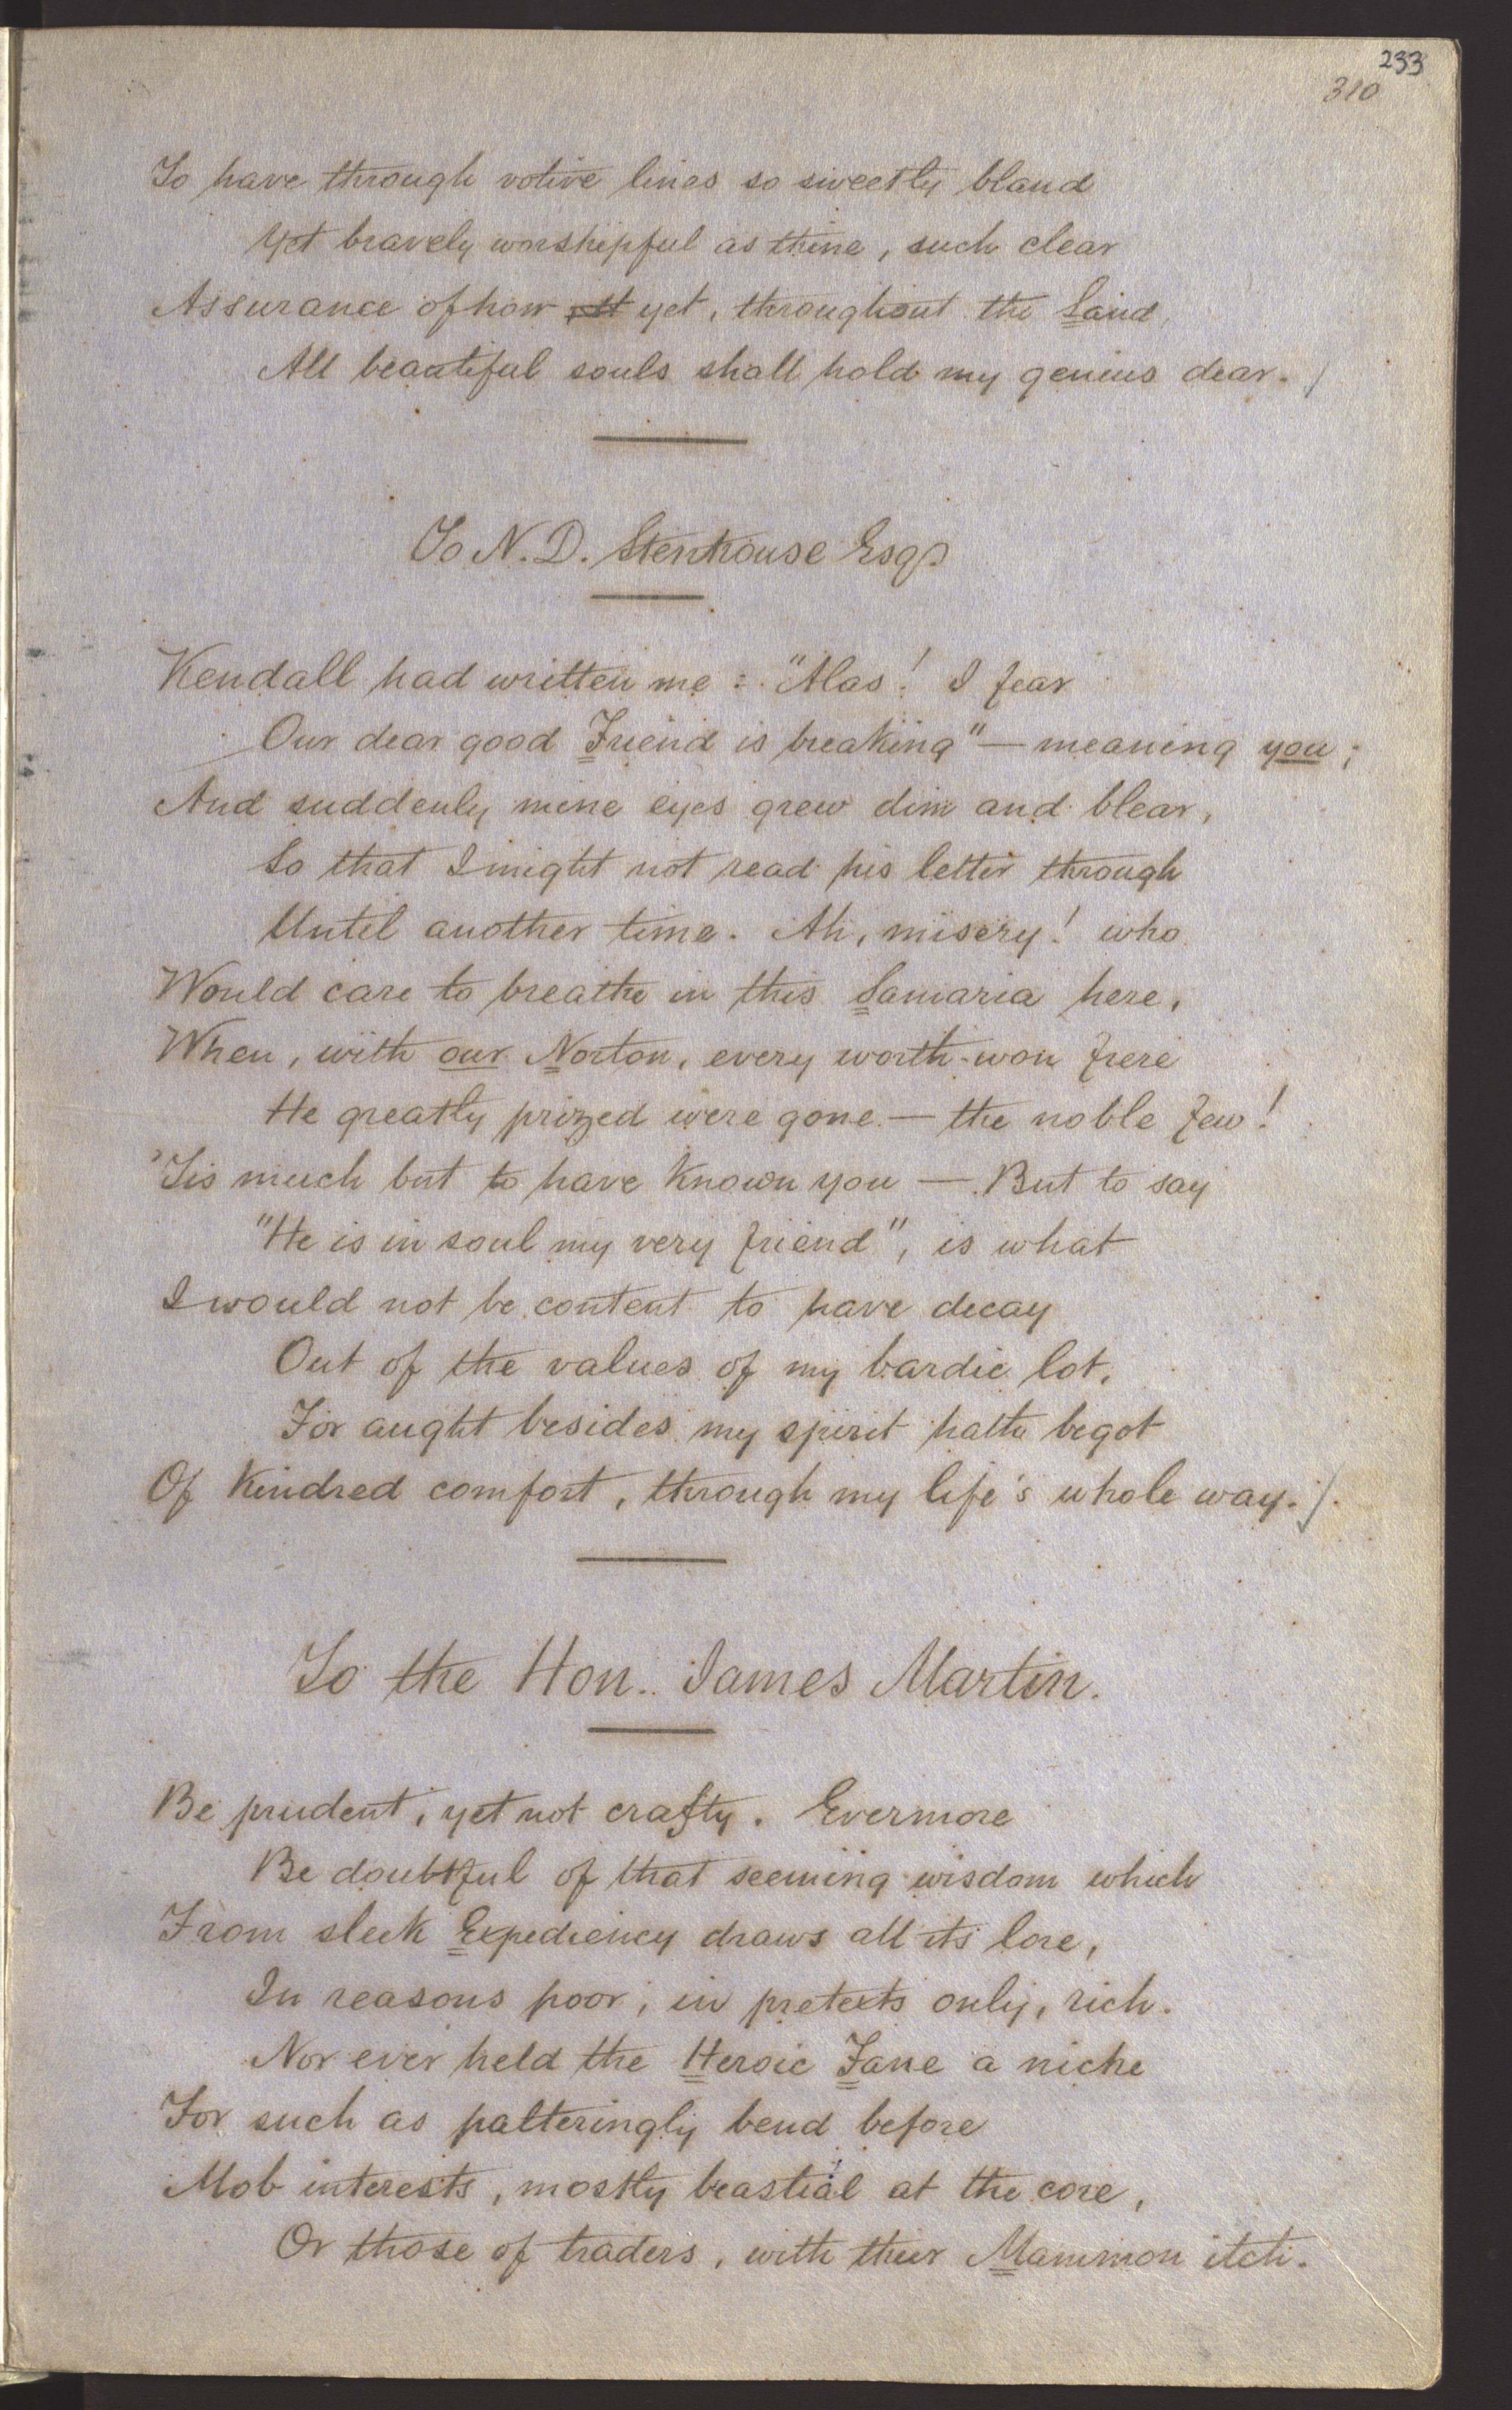 233
310
To have through votive lines so sweetly bland
Yet bravely worshipful as thine, such clear
Assurance of how yet, throughout the Land,
All beautiful souls shall hold my genius dear.
To N. D. Stenhouse Esqr
Kendall had written me: "Alas! I fear
Our dear good Friend is breaking" — meaning you;
And suddenly mine eyes grew dim and blear,
So that I might not read his letter through
Until another time. Ah, misery! who
Would care to breathe in this Samaria here,
When, with our Norton, every worth-won frere
He greatly prized were gone — the noble few!
'Tis much but to have known you — But to say
"He is in soul my very friend", is what
I would not be content to have decay
Out of the values of my bardic lot,
For aught besides my spirit hath begot
Of kindred comfort, through my life's whole way.
To the Hon. James Martin.
Be prudent, yet not crafty. Evermore
Be doubtful of that seeming wisdom which
From sleek Expediency draws all its lore,
In reasons poor, in pretexts only, rich.
Nor ever held the Heroic Fane a niche
For such as palteringly bend before
Mob interests, mostly beastial at the core,
Or those of traders, with their Mammon itch.